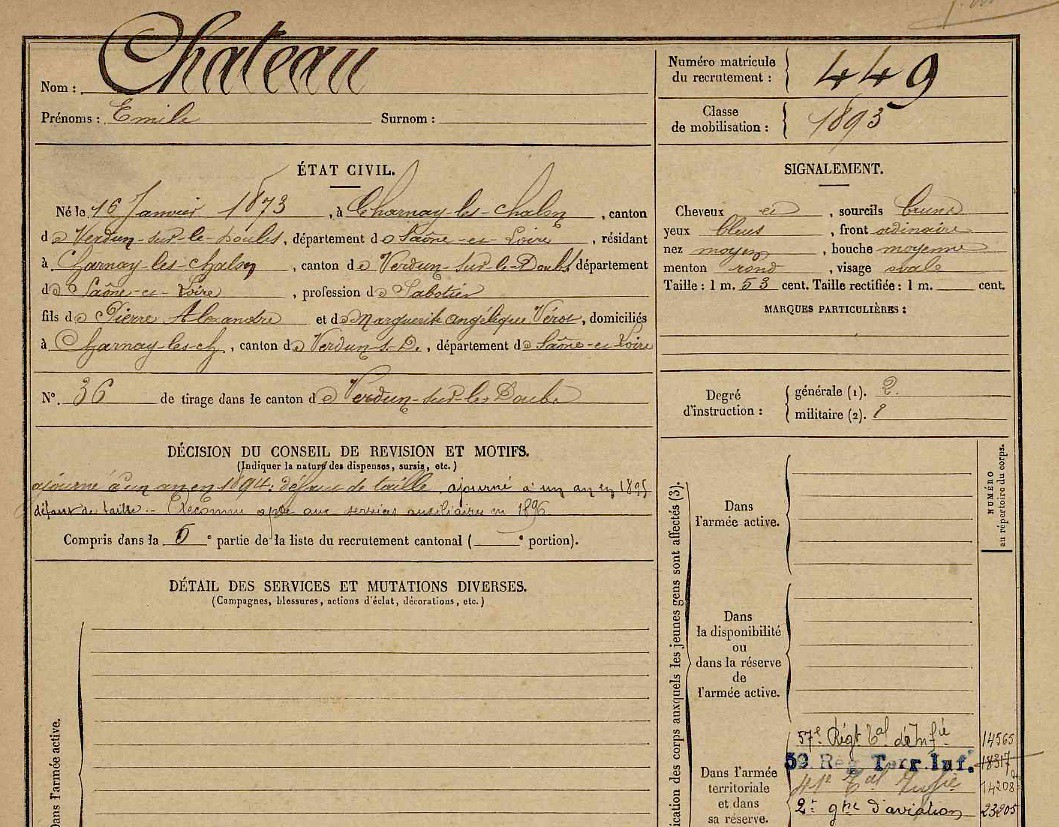 Nom : Chateau
Prénoms : Emile Surnom :
Numéro matricule
du recrutement : 449
Classe
de mobilisation : 1893
ÉTAT CIVIL.
Né le 16 Janvier 1873, à Charnay-les-chalon, canton
de Verdun-sur-le-Doubs, département de Saône-et-Loire, résidant
à Charnay-les-chalon, canton de Verdun-sur-le-Doubs département
de Saône-et-Loire, profession de Sabotier
fils de Pierre Alexandre et de Marguerite Angélique Verot, domiciliés
à Charnay-les-ch, canton de Verdun s. D., département de Saône-et-Loire
SIGNALEMENT.
Cheveux et, sourcils bruns
yeux bleus, front ordinaire
nez moyen, bouche moyenne
menton rond, visage ovale
Taille : 1 m. 53 cent. Taille rectifiée : 1 m. cent.
MARQUES PARTICULIÈRES :
N°. 36 de tirage dans le canton de Verdun-sur-le-Doubs
Degré
d'instruction :
générale (1). 2.
militaire (2).
DÉCISION DU CONSEIL DE REVISION ET MOTIFS.
(Indiquer la nature des dispenses, sursis, etc.)
ajourné à un an en 1894: défaut de taille. ajourné à un an en 1895
défaut de taille - Reconnu apte aux services auxiliaires en 1896
Compris dans la 5e partie de la liste du recrutement cantonal ( e portion).
DÉTAIL DES SERVICES ET MUTATIONS DIVERSES.
(Campagnes, blessures, actions d'éclat, décorations, etc.)
Dans l'armée active.
ication des corps auxquels les jeunes gens sont affectés (3).
NUMÉRO
au répertoire du corps.
Dans
l'armée active.
Dans
la disponibilité
ou
dans la réserve
de
l'armée active.
Dans l'armée
territoriale
et dans
sa réserve.
57e Régt Tal d'Infie 14565
59 Reg Terr. Inf. 18317
Tal Infie 14208
2e gpe d'aviation 23205